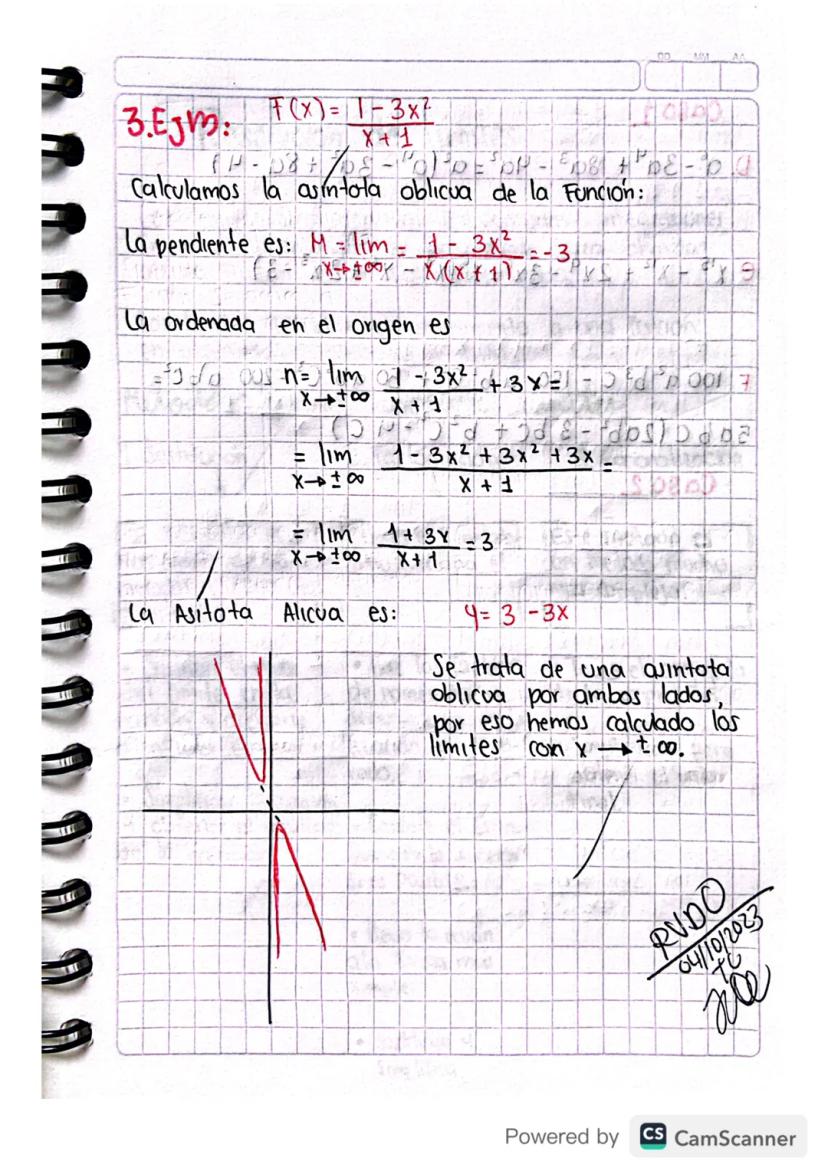 DD MM AA
3. Ejm: F(x) = 1 - 3x² / x + 1
Calculamos la asíntota oblicua de la Función:
La pendiente es: M = lim x→±∞ = 1 - 3x² / x(x+1) = -3
La ordenada en el origen es
n = lim x→±∞ 1 - 3x² / x + 1 + 3x =
= lim x→±∞ 1 - 3x² + 3x² + 3x / x + 1 =
= lim x→±∞ 1 + 3x / x + 1 = 3
La Asítota Alicua es: y = 3 - 3x
Se trata de una asintota
oblicua por ambos lados,
por eso hemos calculado los
limites con x → ± ∞.
RVDO
04/10/2023
Powered by CS CamScanner